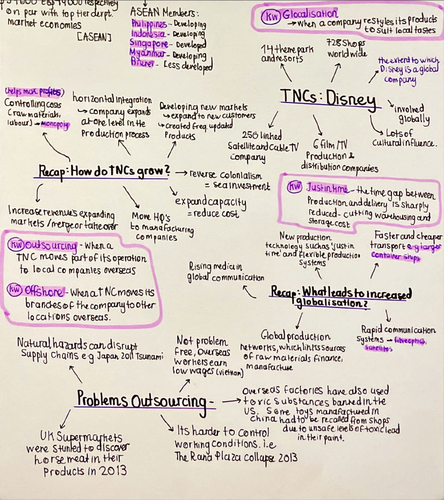 on par with top tier dev't.
market economies
[ASEAN]
ASEAN Members:
Philippines - Developing
Indonesia - Developing
Singapore - Developed
Myanmar - Developing
Brunei - Less developed
KW Glocalisation
→ When a company restyles its products
to suit local tastes
14 theme park
and resorts
728 shops
worldwide
the extent to which
Disney is a global
company
TNCs: Disney
involved
globally
Lots of
cultural influence.
6 film/TV
Production &
distribution companies
256 linked
Satellite and cable TV
company
(helps max profits)
Controlling costs
(raw materials,
labour) → monopoly
horizontal integration
↳ company expands
at one level in the
Production process
Developing new markets
↳ expand to new customers
↳ created freq. updated
Products
Recap: How do TNCs grow?
→ reverse colonialism
= sea investment
expand capacity
= reduce cost
Increase revenues expanding
markets / merge or take over
More HQ's
to manufacturing
companies
KW Just in time - the time gap between
Production and delivery is sharply
reduced - cutting warehousing and
storage cost
KW Outsourcing - When a
TNC moves part of its operation
to local companies overseas
KW Offshore - When a TNC moves its
branches of the company to other
locations overseas.
New production
technology such as 'just in
time' and flexible production
systems
Faster and cheaper
transport e.g larger
container ships
Rising media in
global communication
Recap: What leads to increased
globalisation?
Global production
networks, which links sources
of raw materials finance,
manufacture
Rapid communication
systems -
satellites
Natural hazards can disrupt
Supply chains e.g Japan, 2011 Tsunami
Not problem
free, overseas
workers earn
low wages (vietnam)
Problems Outsourcing -
→ Overseas factories have also used
toxic substances banned in the
US. Some toys manufactured in
China had to be recalled from shops
due to unsafe levels of toxic lead
in their paint.
UK Supermarkets
were stunned to discover
horse meat in their
Products in 2013
Its harder to control
working conditions. i.e
The Rana Plaza collapse 2013